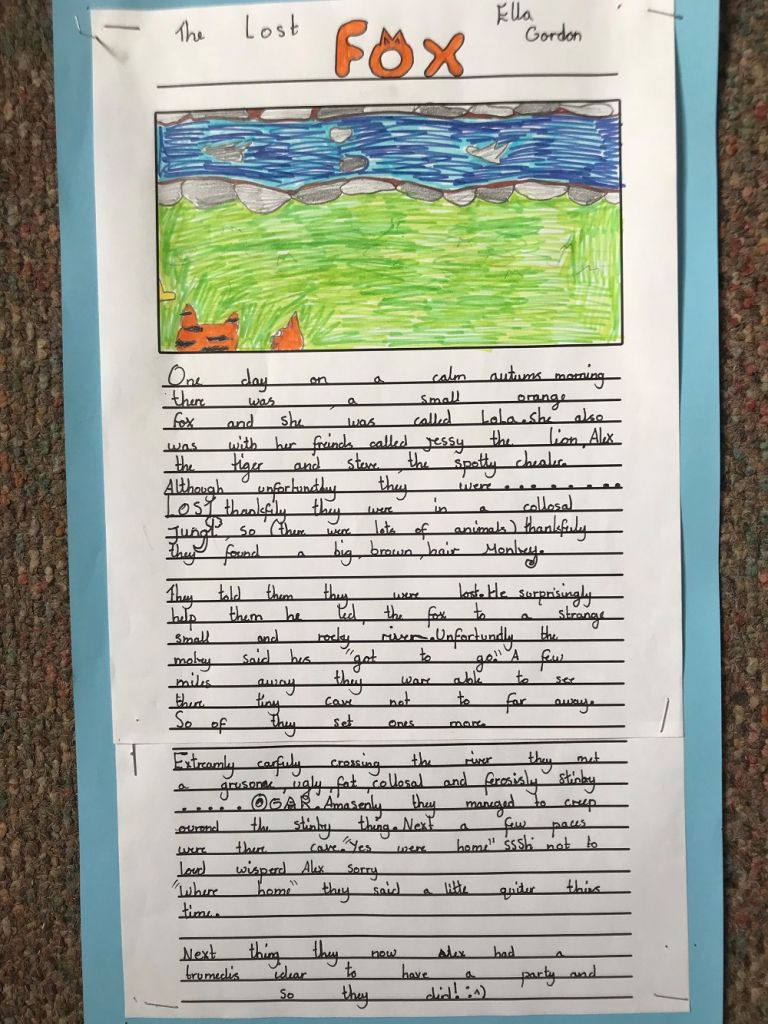 The Lost FOX
Ella
Gordon
One day on a calm autums morning
there was a small orange
fox and she was called LoLa. She also
was with her freinds called Jessy the lion, Alex
the tiger and steve the spotty cheater.
Although unfortundtly they were ........
LOST thankfily they were in a collosal
jungl so (there were lots of animals) thankfuly
they found a big, brown, hair Monkey.
They told them they were lost. He surprisingly
help them he led, the fox to a strange
small and rocky river. Unfortundly the
mokey said his "got to go." A few
miles away they ware able to see
there tiny cave not to far away.
So of they set ones more.
Extreamly carfuly crossing the river they met
a grusome, ugly, fat, collosal and ferosisly stinby
...... OGAR. Amasenly they maneged to creep
ourond the stinby thing. Next a few paces
were there cave. "Yes were home" SSSh not to
loud wisperd Alex sorry
"Where home" they said a litle quider this
time.
Next thing they now Alex had a
bromedis idear to have a party and
so they did! :^)